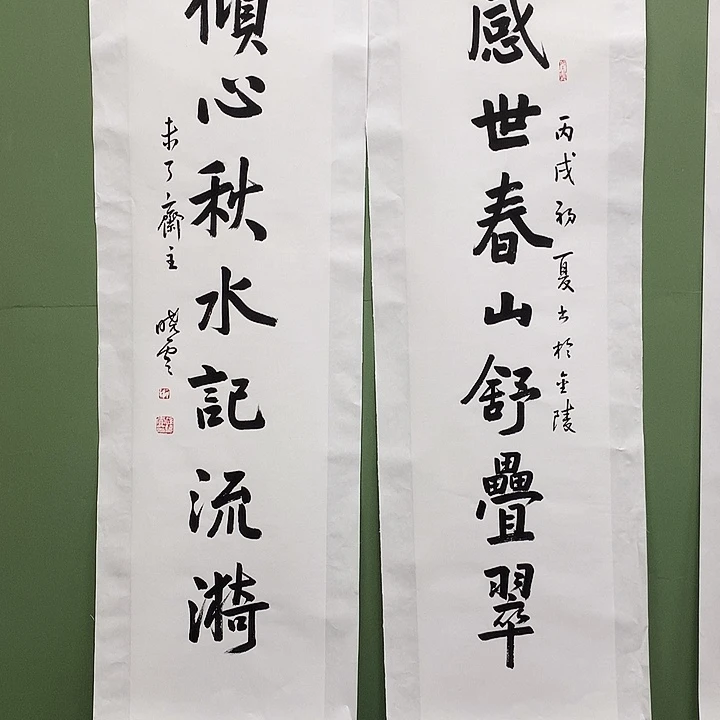 感世春山舒疊翠
丙戌初夏書於金陵
傾心秋水記流漪
未了齋主 曉雲